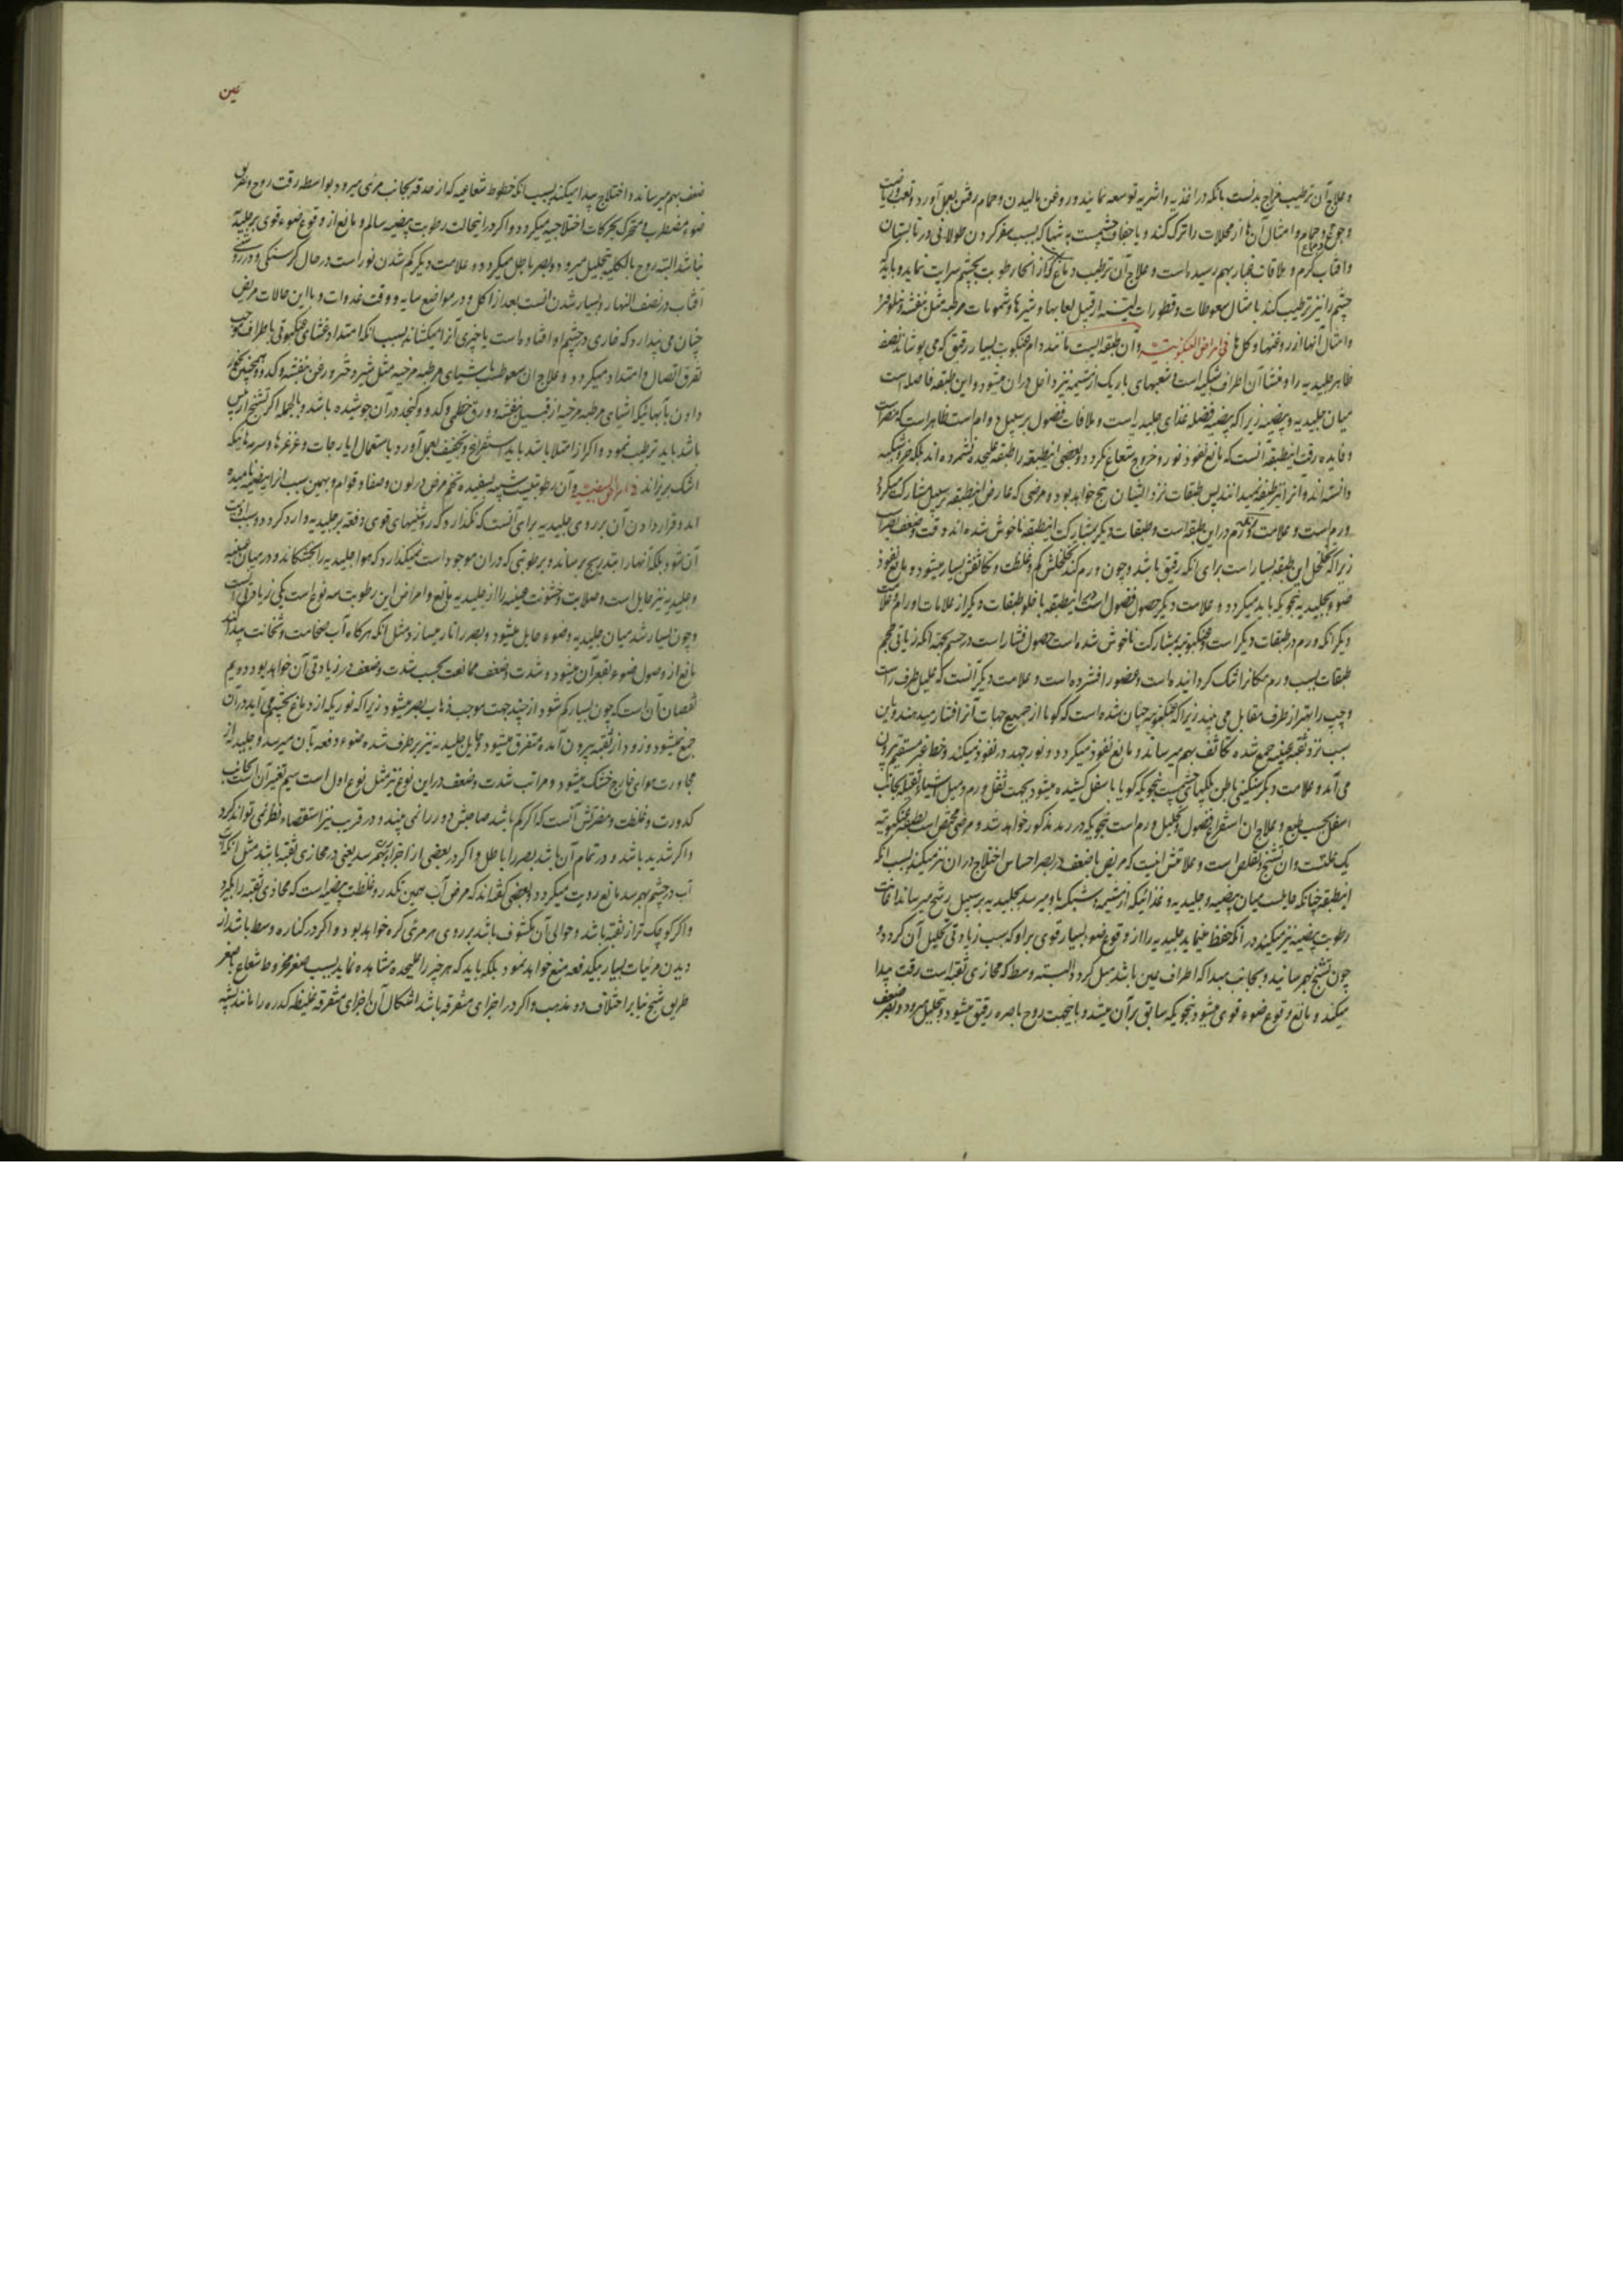 و علاج آن ترطیب مزاج بدنست بانکه در اغذیه و اشربه توسعه نمایند و روغن مالیدن و حمام رفتن بعمل آورد و تعب و ریاضت
و جوع و حمام و امثال آن ها از محللات را ترک کند و یا جفاف چشمست به تنها که بسبب سفر کردن طولانی در تابستان
و آفتاب گرم و ملاقات غبار بهم رسیده است و علاج آن ترطیب دماغ که از انجا رطوبت بچشم سرایت نماید و باید
چشم را نیز ترطیب کند با مثال سعوطات و قطورات لینه از قبیل لعابها و شیرها و شمومات مرطبه مثل بنفشه و نیلوفر
و امثال آنها از روغنها و گل ها فی امراض العنکبوتیه و ان طبقه ایست مانند دام عنکبوت بسیار رقیق که می پوشاند نصف
ظاهر جلیدیه را و منشا آن اطراف شبکیه است و شعبهای باریک از مشیمه نیز داخل در ان میشود و این طبقه فاصله است
میان جلیدیه و بیضیه زیرا که بیضیه فضله غذای جلیدیه است و ملاقات فضول بر سبیل دوام است ظاهر است که مضر است
و فایده رقت اینطبقه آنست که مانع نفوذ نور و خروج شعاع نگردد و بعضی اینطبقه را طبقه علیحده نشمرده اند بلکه جزو شبکیه
دانسته اند و آنرا نیز طبقه نمیدانند پس طبقات نزد ایشان پنج خواهد بود و مرضی که عارض اینطبقه بر سبیل مشارکت میگردد
ورم است و علامت ورم در این طبقه است و طبقات دیگر بمشارکت اینطبقه ناخوش شده اند وقت و ضعف بصر است
زیرا که تخلخل این طبقه بسیار است برای انکه رقیق باشد و چون ورم کند تخلخلش کم و غلظت و تکاثفش بسیار میشود و مانع نفوذ
ضوء بجلیدیه بنحویکه باید میگردد و علامت دیگر حصول فضول است در اینطبقه با خلو طبقات دیگر از علامات اورام و علامت
دیگر انکه ورم در طبقات دیگر است و عنکبوتیه بمشارکت ناخوش شده است حصول فشار است در جسم بجهة انکه زیادتی حجم
طبقات بسبب ورم مکانرا تنگ گردانیده است و عضو را فشرده است و علامت دیگر آنست که علیل طرف راست
و چپ را بهتر از طرف مقابل می بیند زیرا که عنکبوتیه چنان شده است که گویا از جمیع جهات آنرا فشار میدهند و باین
سبب نزد ثقبه عنبیه جمع شده تکاثف بهم میرساند و مانع نفوذ میگردد و نور جهد در نفوذ میکند و خط غیر مستقیم بیرون
می آید و علامت دیگر سنگینی باطن پلکهای چشمست بنحویکه گویا باسفل کشیده میشود بجهت ثقل ورم و میل اشیاء ثقیله بجانب
اسفل بحسب طبع و علاج ان استفراغ فضول و تحلیل ورم است بنحویکه در رمد مذکور خواهد شد و مرضی مختص است بطبقه عنکبوتیه
یک علتست و ان تشنج و تقلص است و علامتش اینست که مریض با ضعف در بصر احساس اختلاج در ان نیز میکند بسبب انکه
اینطبقه چنانکه حایلست میان بیضیه و جلیدیه و غذائیکه از مشیمه و شبکیه باو میرسد بجلیدیه بر سبیل رشح میرساند اعانت
رطوبت بیضیه نیز میکند در آنکه حفظ مینماید جلیدیه را از وقوع ضوء بسیار قوی بر او که سبب زیادتی تحلیل آن گردد و
چون تشنج بهم رسانید و بجانب مبدا که اطراف عین باشد میل کرد و البسته وسط که محاذی ثقبه است رقت پیدا
میکند و مانع وقوع ضوء قوی میشود بنحویکه سابق بر آن میشد و باینجهت روح باصره رقیق میشود و بتحلیل میرود و بصر ضعیف
عین
ضعف بهم میرساند و اختلاج پیدا میکند بسبب انکه خطوط شعاعیه که از حدقه بجانب مرئی میرود بواسطه رقت روح و تفرق
ضوء مضطرب و متحرک بحرکات اختلاجیه میگردد و اگر در اینحالت رطوبت بیضیه سالم و مانع از وقوع ضوء قوی بر جلیدیه
نباشد البته روح بالکلیه بتحلیل میرود و بصر باطل میگردد و علامت دیگر کم شدن نور است در حال گرسنگی و در روی
آفتاب و در نصف النهار و بسیار شدن انست بعد از اکل و در مواضع سایه و وقت غدوات و با این حالات مریض
چنان می پندارد که خاری در چشم او افتاده است یا چیزی آنرا میکشاند بسبب انکه امتداد غشای عنکبوتی باطراف موجب
تفرق اتصال و امتداد میگردد و علاج ان سعوطست باشیای مرطبه مرخیه مثل شیر دختر و روغن بنفشه و کدو و همچنین بخور
دادن بآبهائیکه اشیای مرطبه مرخیه از قبیل بنفشه و ورق خطمی و کدو و کنجد در آن جوشیده باشد و بالجمله اگر تشنج از یبس
باشد باید ترطیب نمود و اگر از امتلا باشد باید استفراغ و تجفیف بعمل آورد باستعمال ایارجات و غرغرها و سرمه هائیکه
اشک بریزاند فی امراض البیضیه و آن رطوبتیست شبیه بسفیده تخم مرغ در لون و صفا و قوام و بهمین سبب انرا بیضیه نامیده
اند و قرار دادن آن بر روی جلیدیه برای آنست که نگذارد که روشنیهای قوی دفعة بر جلیدیه وارد گردد و سبب اذیت
آن شود بلکه آنها را بتدریج برساند و بر طوبتی که در ان موجود است نمیگذارد که هوا جلیدیه را بخشکاند و در میان عنبیه
و جلیدیه نیز حایل است و صلابت و خشونت عنبیه را از جلیدیه مانع و امراض این رطوبت سه نوع است یکی زیادتی است
و چون بسیار شد میان جلیدیه و ضوء حایل میشود و بصر را تار میسازد مثل انکه هرگاه آب ضخامت و ثخانت پیدا کند
مانع از وصول ضوء بقعر آن میشود و شدت و ضعف ممانعت بحسب شدت و ضعف در زیادتی آن خواهد بود دویم
نقصان آن است که چون بسیار کم شود از چند جهت موجب ذهاب بصر میشود زیرا که نوریکه از دماغ بچشم می آید در آن
جمع نمیشود و زود از ثقبه بیرون آمده متفرق میشود و حایل جلیدیه نیز برطرف شده ضوء دفعة بآن میرسد و جلیدیه از
مجاورت هوای خارج خشک میشود و مراتب شدت و ضعف در این نوع نیز مثل نوع اول است سیم تغیر آن است بجانب
کدورت و غلظت و مضرتش آنست که اگر کم باشد صاحبش دور را نمی بیند و در قریب نیز استقصاء نظر نمی تواند کرد
و اگر شدید باشد و در تمام آن باشد بصر را باطل و اگر در بعضی از اجزاء بهم رسد یعنی در محاذی ثقبه باشد مثل انکه
آب در چشم بهم رسد مانع رویت میگردد و بعضی گفته اند که مرض آب همین تکدر و غلظت بیضیه است که محاذی ثقبه را بگیرد
و اگر کوچک تر از ثقبه باشد و حوالی آن مکشوف باشد بر روی هر مرئی گره خواهد بود و اگر در کناره وسط باشد از
دیدن مرئیات بسیار بیکدفعه منع خواهد نمود بلکه باید که هر چیز را علیحده مشاهده نماید بسبب صغر مخروط شعاع یا صغر
طریق شبح بنا بر اختلاف دو مذهب و اگر در اجزای متفرقه باشد اشکال آن اجزای متفرقه غلیظه کدره را مانند پشه